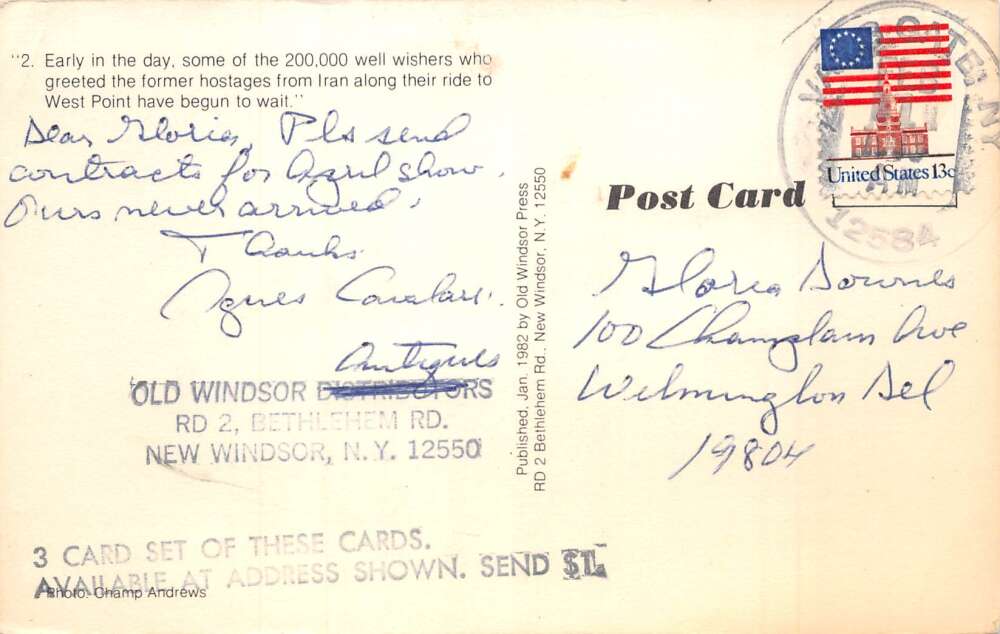 "2. Early in the day, some of the 200,000 well wishers who
greeted the former hostages from Iran along their ride to
West Point have begun to wait."
Dear Gloria, Pls send
contracts for April show.
Ours never arrived.
Thanks
Agnes
Antiques
OLD WINDSOR DISTRIBUTORS
RD 2, BETHLEHEM RD.
NEW WINDSOR, N.Y. 12550
3 CARD SET OF THESE CARDS.
AVAILABLE AT ADDRESS SHOWN. SEND $1.
Photo: Champ Andrews
Published, Jan. 1982 by Old Windsor Press
RD 2 Bethlehem Rd., New Windsor, N.Y. 12550
Post Card
United States 13c
VAILS GATE, NY
AM
12584
Gloria Downes
100 Champlain Ave
Wilmington Del
19804